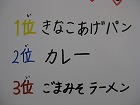 1位 きなこあげパン
2位 カレー
3位 ごまみそラーメン